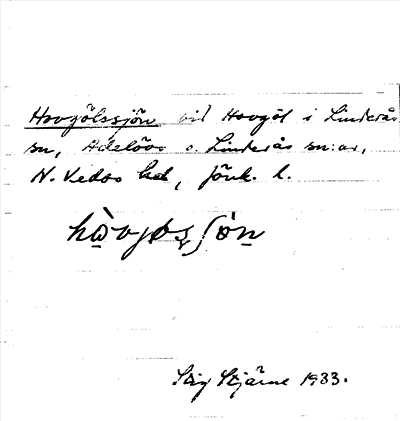 Hovgölssjön vid Hovgöl i Linderås
sn, Adelövs o. Linderås sn:ar,
N. Vedbo hd, Jönk. l.
Stig Stjärne 1933.